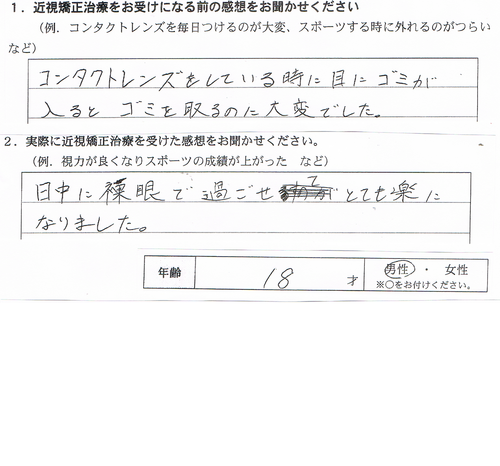 1．近視矯正治療をお受けになる前の感想をお聞かせください
（例．コンタクトレンズを毎日つけるのが大変、スポーツする時に外れるのがつらい
など）
コンタクトレンズをしている時に目にゴミが
入ると ゴミを取るのに大変でした。
2．実際に近視矯正治療を受けた感想をお聞かせください。
（例．視力が良くなりスポーツの成績が上がった　など）
日中に裸眼で過ごせて とても楽に
なりました。
年齢 18 才 男性 ・ 女性
※〇をお付けください。